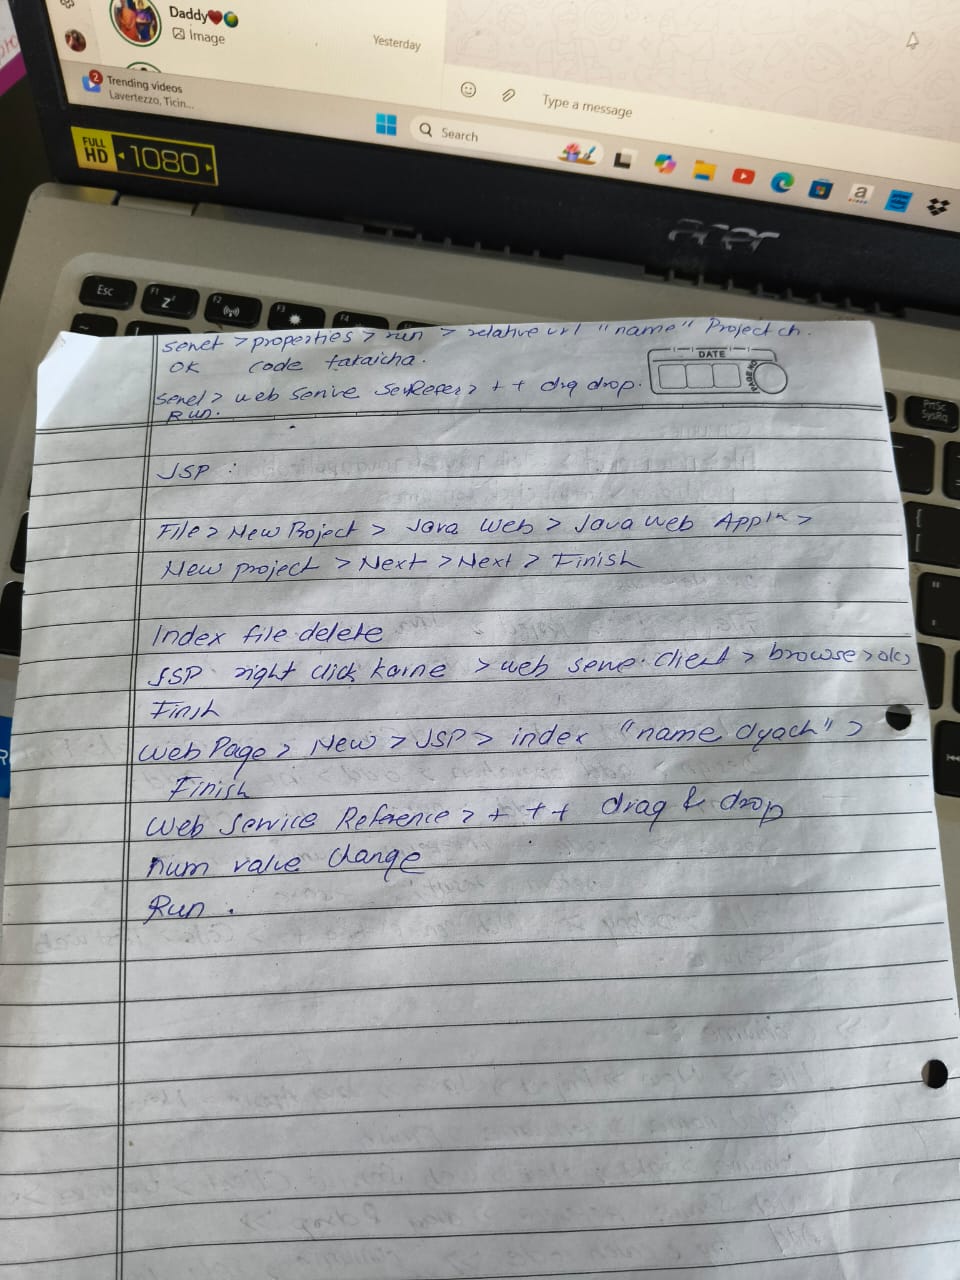 Daddy
Image
Yesterday
2
Trending videos
Lavertezzo, Ticin...
Type a message
Search
FULL HD 1080
a
acer
Esc
F1
F2
F3
F4
PrtSc
SysRq
servet > properties > run > relative url "name" Project ch.
OK code takaicha.
DATE
PAGE NO
web > + + drg drop.
Run.
JSP :
File > New Project > Java Web > Java web Appln >
New project > Next > Next > Finish
Index file delete
JSP right click karne > web serve. client > browse > ok >
Finsh
Web Page > New > JSP > index "name dyach" >
Finish
Web Service Reference > + ++ drag & drop
num value change
Run .